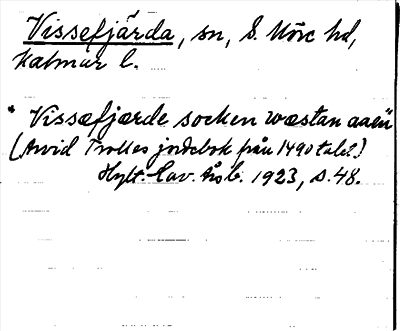 Vissefjärda, sn, S. Möre hd,
Kalmar l.
"Vissæfjærde socken wæstan aaen"
(Arvid Trolles jordebok från 1490 talet)
Hylt.-Cav. Årsb. 1923, s. 48.